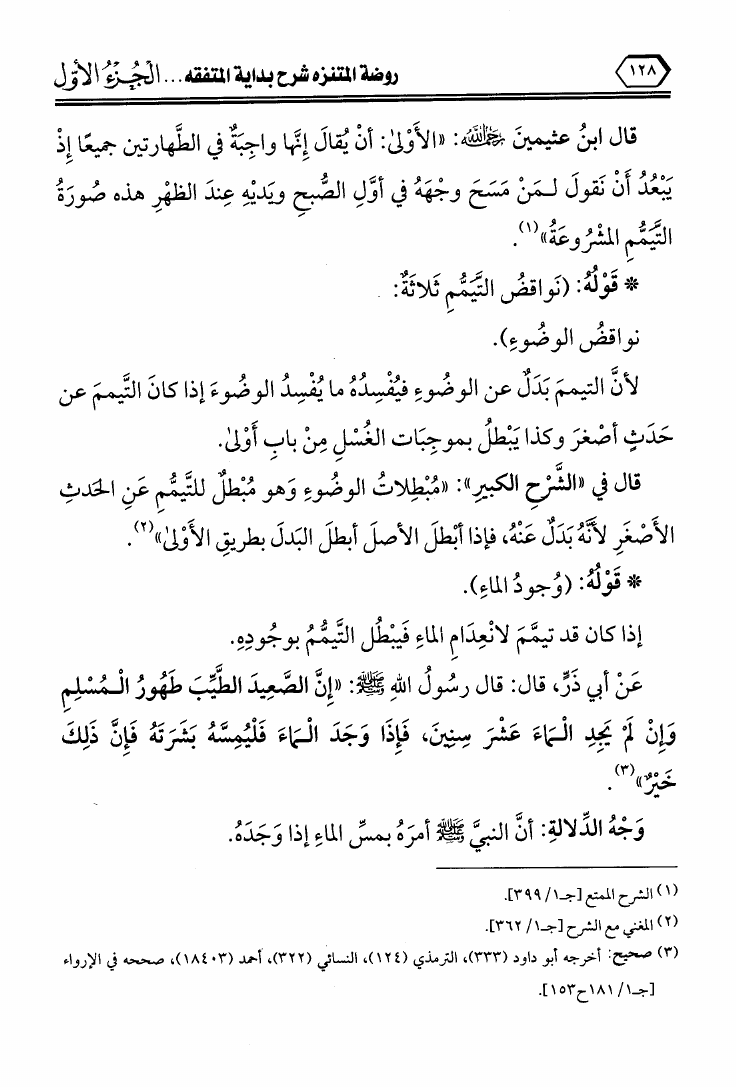 ١٢٨ روضة المتنزه شرح بداية المتفقه ... الْجُزْءُ الْأَوَّل
قال ابنُ عثيمينَ رَحِمَهُ اللَّهُ: «الأَوْلىٰ: أنْ يُقالَ إنَّها واجِبَةٌ في الطَّهارتين جميعًا إذْ
يَبْعُدُ أَنْ نَقولَ لـمَنْ مَسَحَ وجْهَهُ في أوَّلِ الصُّبحِ ويَديْهِ عِندَ الظهْرِ هذه صُورَةُ
التَّيَمُّمِ المشْرُوعَةُ»(١).
* قَوْلُهُ: (نَواقضُ التَّيَمُّمِ ثَلاثَةٌ:
نواقضُ الوضُوءِ).
لأنَّ التيممَ بَدَلٌ عن الوضُوءِ فيُفْسِدُهُ ما يُفْسِدُ الوضُوءَ إذا كانَ التَّيممَ عن
حَدَثٍ أصْغرَ وكذا يَبْطلُ بموجِبَات الغُسْلِ مِنْ بابِ أَوْلىٰ.
قال في «الشَّرْحِ الكبيرِ»: «مُبْطِلاتُ الوضُوءِ وَهو مُبْطلٌ للتَّيمُّمِ عَنِ الحَدثِ
الأَصْغَرِ لأنَّهُ بَدَلٌ عَنْهُ، فإذا أبْطلَ الأصلَ أبطلَ البَدلَ بطريقِ الأَوْلىٰ»(٢).
* قَوْلُهُ: (وُجودُ الماءِ).
إذا كان قد تيمَّمَ لانْعِدَامِ الماءِ فَيَبْطُل التَّيمُّمُ بوجُودِهِ.
عَنْ أبي ذَرٍّ، قال: قال رسُولُ اللهِ ﷺ: «إِنَّ الصَّعِيدَ الطَّيِّبَ طَهُورُ الْـمُسْلِمِ
وَإِنْ لَمْ يَجِدِ الْـمَاءَ عَشْرَ سِنِينَ، فَإِذَا وَجَدَ الْـمَاءَ فَلْيُمِسَّهُ بَشَرَتَهُ فَإِنَّ ذَلِكَ
خَيْرٌ»(٣).
وَجْهُ الدِّلالةِ: أنَّ النبيَّ ﷺ أمرَهُ بمسِّ الماءِ إذا وَجَدَهُ.
(١) الشرح الممتع [جـ١/ ٣٩٩].
(٢) المغني مع الشرح [جـ١/ ٣٦٢].
(٣) صحيح: أخرجه أبو داود (٣٣٣)، الترمذي (١٢٤)، النسائي (٣٢٢)، أحمد (١٨٤٠٣)، صححه في الإرواء
[جـ١/ ١٨١ح١٥٣].